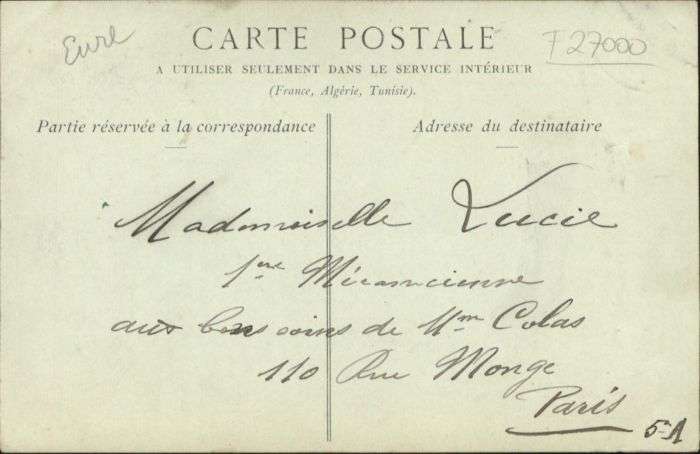 Eure
F 27000
CARTE POSTALE
A UTILISER SEULEMENT DANS LE SERVICE INTÉRIEUR
(France, Algérie, Tunisie).
Partie réservée à la correspondance
Adresse du destinataire
Mademoiselle Lucie
1ère Mécanicienne
aux bons soins de Mme Colas
110 Rue Monge
Paris
5-A